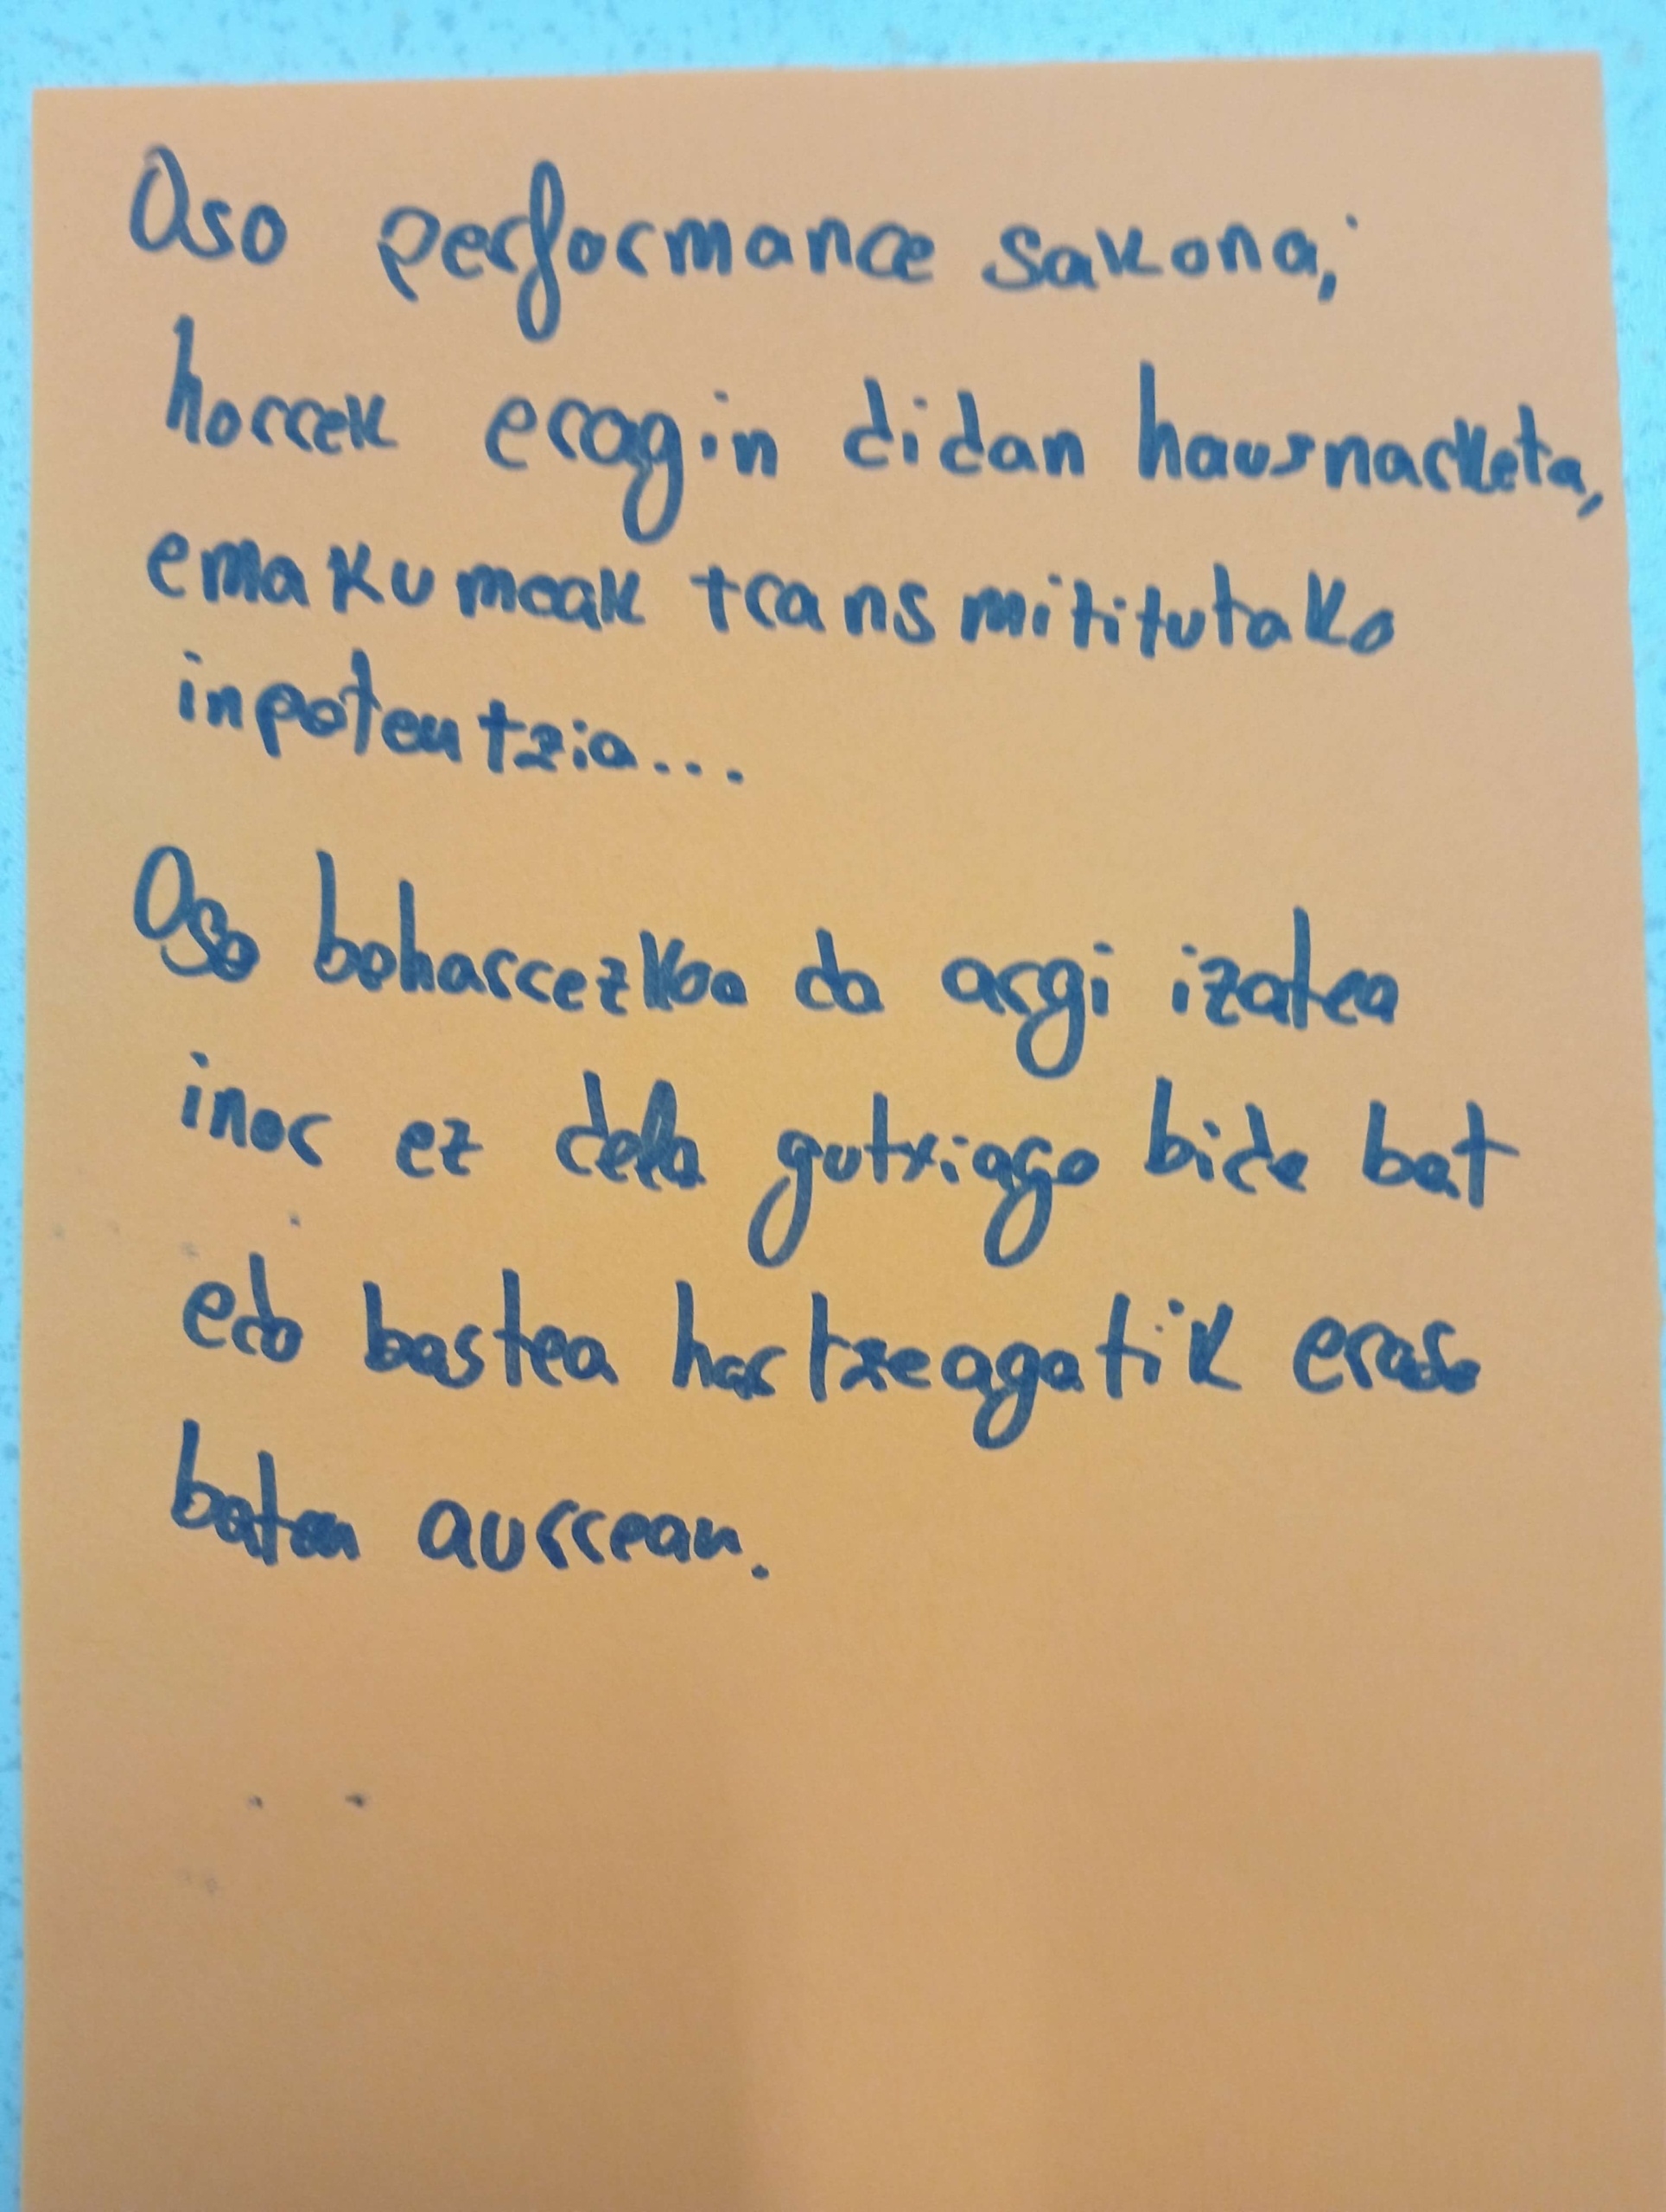 Oso performance sakona;
horrek eragin didan hausnarketa,
emakumeak transmititutako
inpotentzia...
Oso beharrezkoa da argi izatea
inor ez dela gutxiago bide bat
edo bestea hartzeagatik eraso
baten aurrean.